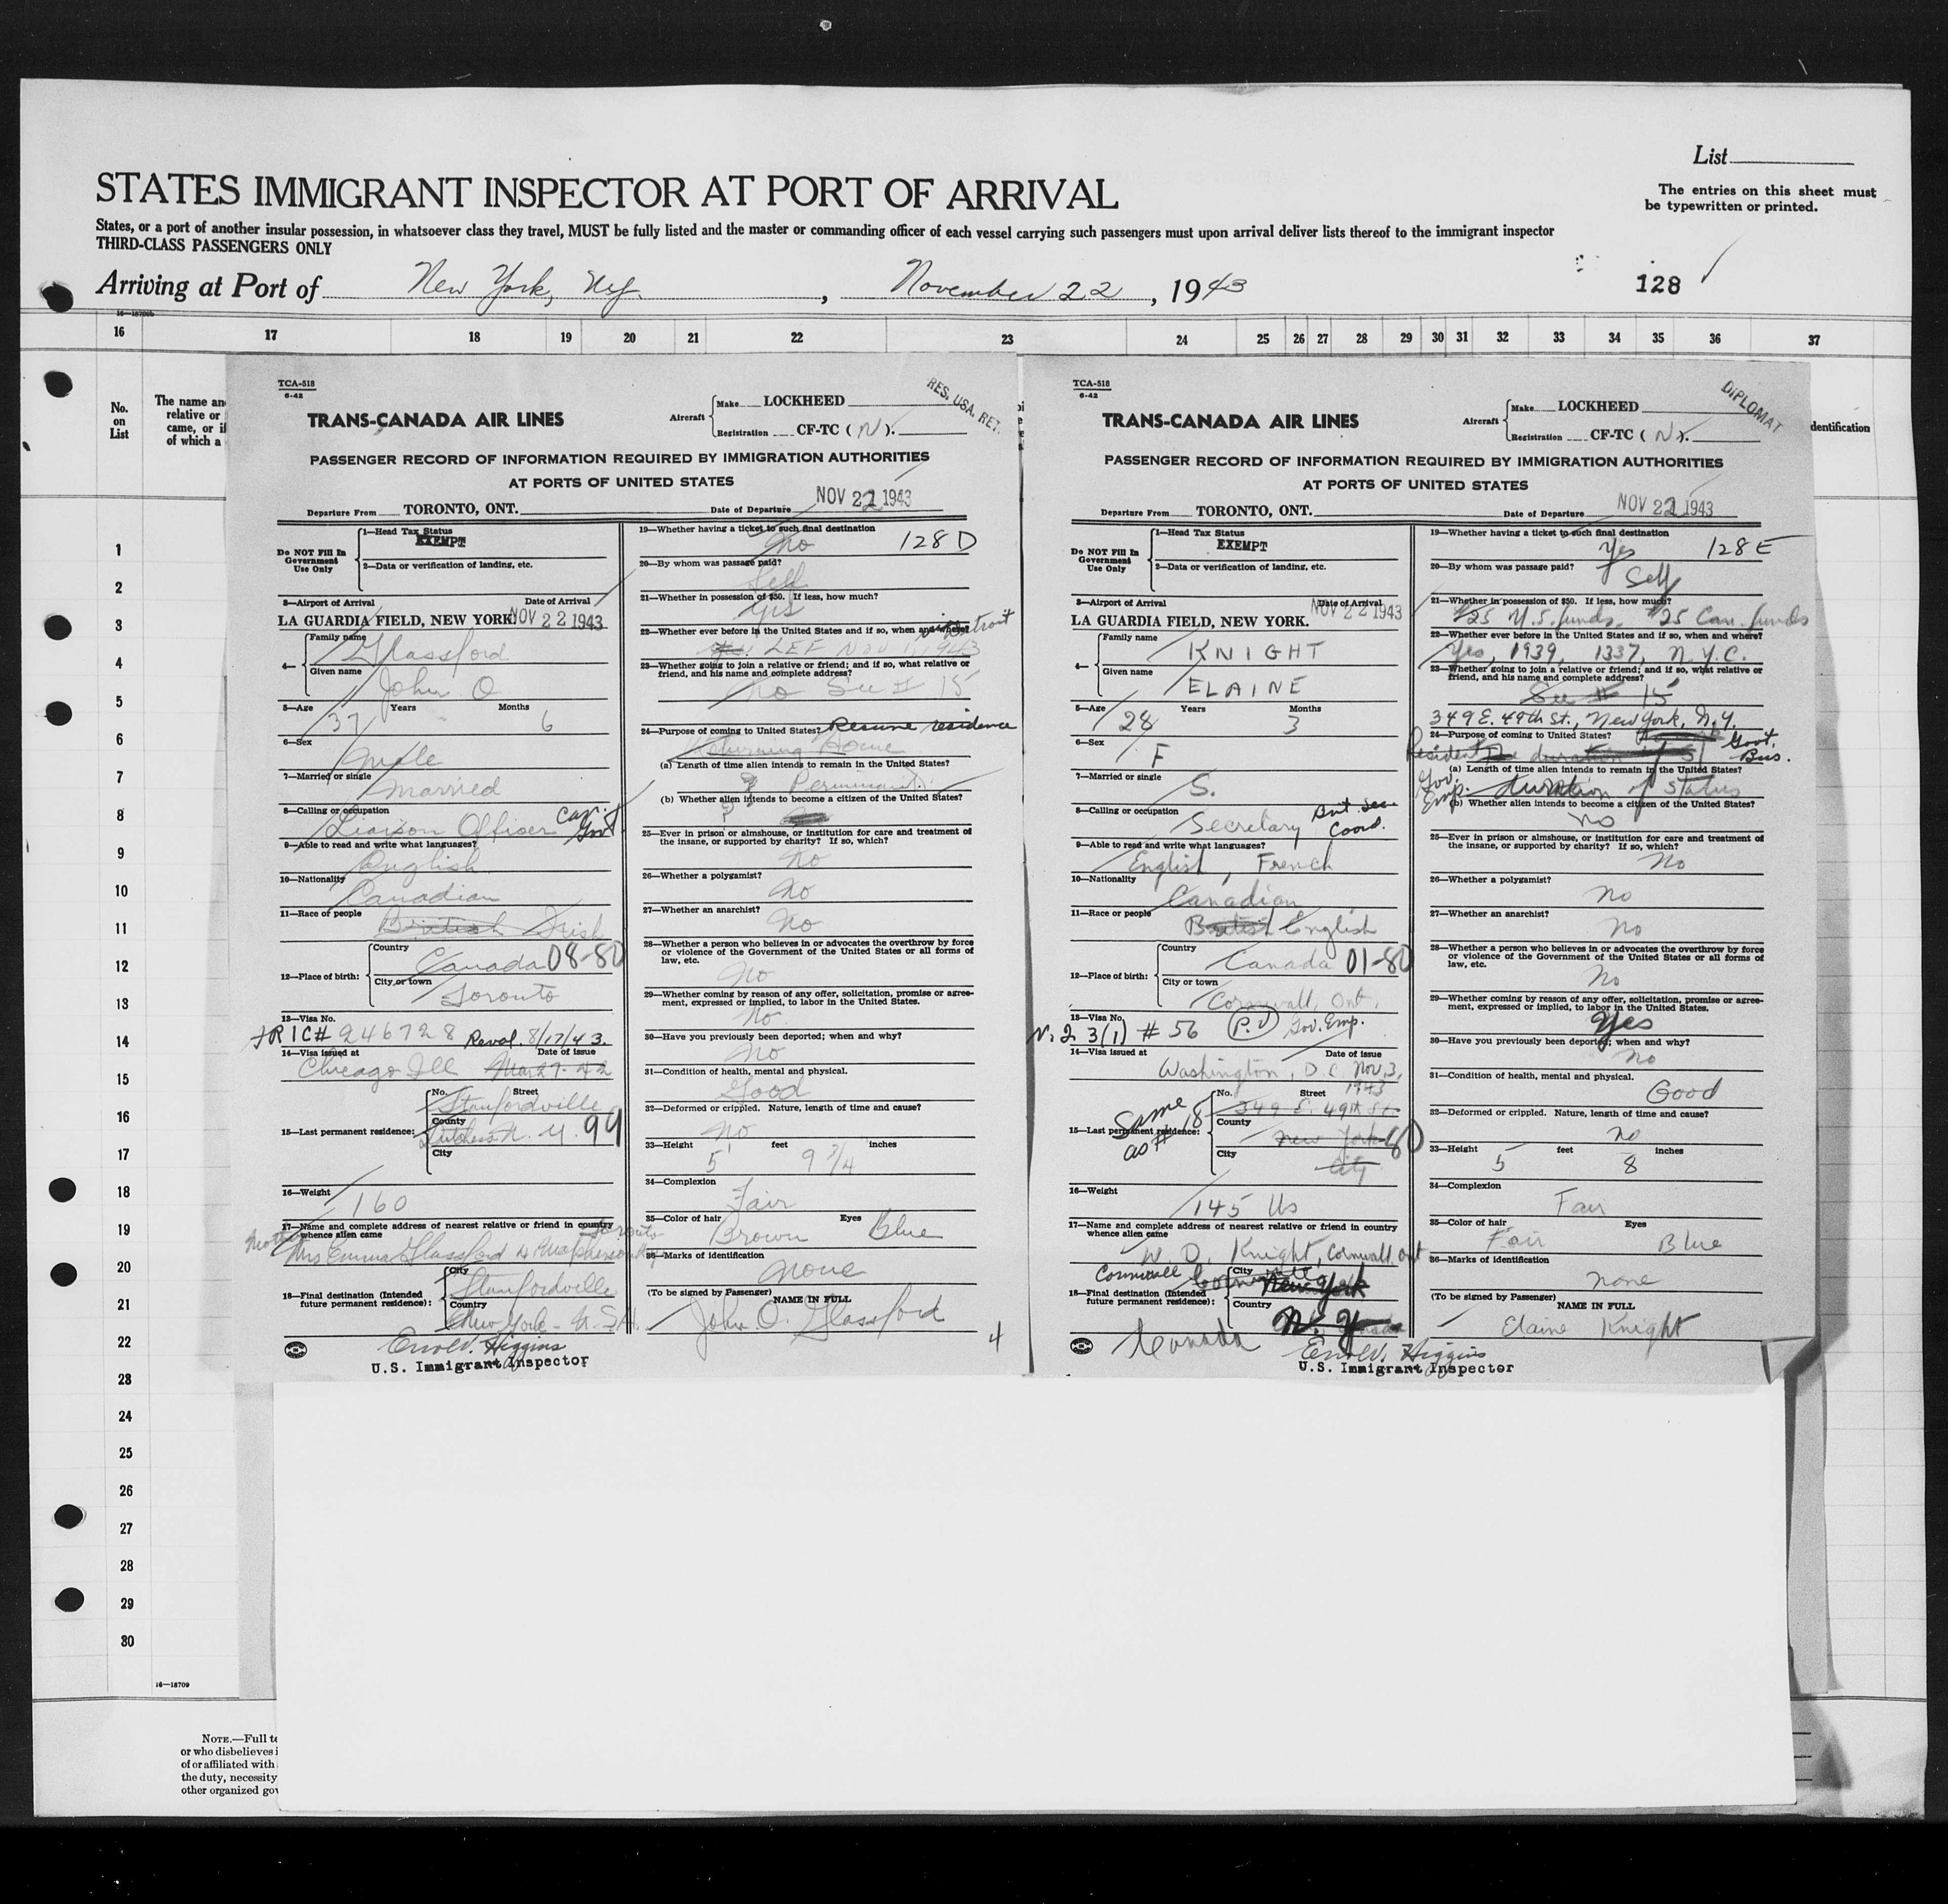 List
STATES IMMIGRANT INSPECTOR AT PORT OF ARRIVAL
The entries on this sheet must
be typewritten or printed.
States, or a port of another insular possession, in whatsoever class they travel, MUST be fully listed and the master or commanding officer of each vessel carrying such passengers must upon arrival deliver lists thereof to the immigrant inspector
THIRD-CLASS PASSENGERS ONLY
Arriving at Port of New York, N.Y. , November 22, 1943
128
16 17 18 19 20 21 22 23 24 25 26 27 28 29 30 31 32 33 34 35 36 37
No.
on
List
The name an
relative or
came, or if
of which a
dentification
1
2
3
4
5
6
7
8
9
10
11
12
13
14
15
16
17
18
19
20
21
22
23
24
25
26
27
28
29
30
16—18709
NOTE.—Full te
or who disbelieves i
of or affiliated with
the duty, necessity
other organized gov
TCA-518
6-42
TRANS-CANADA AIR LINES
Aircraft
Make LOCKHEED
Registration CF-TC (N).
RES. USA. RET.
PASSENGER RECORD OF INFORMATION REQUIRED BY IMMIGRATION AUTHORITIES
AT PORTS OF UNITED STATES
Departure From TORONTO, ONT. Date of Departure NOV 22 1943
Do NOT Fill In
Government
Use Only
1—Head Tax Status
EXEMPT
2—Data or verification of landing, etc.
3—Airport of Arrival Date of Arrival
LA GUARDIA FIELD, NEW YORK. NOV 22 1943
4—
Family name
Glassford
Given name
John O
5—Age Years Months
37 6
6—Sex
Male
7—Married or single
Married
8—Calling or occupation
Liaison Officer Can. Govt
9—Able to read and write what languages?
English
10—Nationality
Canadian
11—Race of people
British Irish
12—Place of birth:
Country
Canada 08-80
City or town
Toronto
13—Visa No.
RIC# 246728 Reval. 8/17/43.
14—Visa issued at Date of issue
Chicago Ill
15—Last permanent residence:
No. Street
Stanfordville
County
Dutchess N.Y. 99
City
16—Weight
160
17—Name and complete address of nearest relative or friend in country
whence alien came
Toronto
Mrs Emma Glassford
18—Final destination (Intended
future permanent residence):
City
Stanfordville
Country
New York - U.S.A.
Errol V. Higgins
U.S. Immigrant Inspector
19—Whether having a ticket to such final destination
No 128 D
20—By whom was passage paid?
Self
21—Whether in possession of $50. If less, how much?
Yes
22—Whether ever before in the United States and if so, when and where?
Detroit
LEF Nov 11, 1943
23—Whether going to join a relative or friend; and if so, what relative or
friend, and his name and complete address?
No See # 15
24—Purpose of coming to United States? Resume residence
Returning Home
(a) Length of time alien intends to remain in the United States?
Permanent
(b) Whether alien intends to become a citizen of the United States?
25—Ever in prison or almshouse, or institution for care and treatment of
the insane, or supported by charity? If so, which?
No
26—Whether a polygamist?
No
27—Whether an anarchist?
No
28—Whether a person who believes in or advocates the overthrow by force
or violence of the Government of the United States or all forms of
law, etc.
No
29—Whether coming by reason of any offer, solicitation, promise or agree-
ment, expressed or implied, to labor in the United States.
No
30—Have you previously been deported; when and why?
No
31—Condition of health, mental and physical.
Good
32—Deformed or crippled. Nature, length of time and cause?
No
33—Height feet inches
5' 9 3/4
34—Complexion
Fair
35—Color of hair Eyes
Brown Blue
36—Marks of identification
None
(To be signed by Passenger) NAME IN FULL
John O. Glassford
4
TCA-518
6-42
TRANS-CANADA AIR LINES
Aircraft
Make LOCKHEED
Registration CF-TC (N).
DIPLOMAT
PASSENGER RECORD OF INFORMATION REQUIRED BY IMMIGRATION AUTHORITIES
AT PORTS OF UNITED STATES
Departure From TORONTO, ONT. Date of Departure NOV 22 1943
Do NOT Fill In
Government
Use Only
1—Head Tax Status
EXEMPT
2—Data or verification of landing, etc.
3—Airport of Arrival Date of Arrival
LA GUARDIA FIELD, NEW YORK. NOV 22 1943
4—
Family name
KNIGHT
Given name
ELAINE
5—Age Years Months
28 3
6—Sex
F
7—Married or single
S.
8—Calling or occupation
Secretary Brit. Sec. Coord.
9—Able to read and write what languages?
English, French
10—Nationality
Canadian
11—Race or people
British English
12—Place of birth:
Country
Canada 01-80
City or town
Cornwall, Ont.
13—Visa No.
3(1) #56 (P.V) Gov. Emp.
14—Visa issued at Date of issue
Washington, D.C. Nov. 3, 1943
15—Last permanent residence:
Same as # 18
No. Street
349 E. 49th St
County
New York
City
City
16—Weight
145 lbs
17—Name and complete address of nearest relative or friend in country
whence alien came
W. D. Knight, Cornwall, Ont
18—Final destination (Intended
future permanent residence):
Cornwall
City
New York
Country
N.Y.
Canada
Errol V. Higgins
U.S. Immigrant Inspector
19—Whether having a ticket to such final destination
Yes 128 E
20—By whom was passage paid?
Self
21—Whether in possession of $50. If less, how much?
$25 U.S. funds. $25 Can. funds
22—Whether ever before in the United States and if so, when and where?
Yes, 1939, 1337, N.Y.C.
23—Whether going to join a relative or friend; and if so, what relative or
friend, and his name and complete address?
See # 15
349 E. 49th St., New York, N.Y.
24—Purpose of coming to United States? Govt. Bus.
Resident duration
(a) Length of time alien intends to remain in the United States?
Gov. Emp. duration of status
(b) Whether alien intends to become a citizen of the United States?
No
25—Ever in prison or almshouse, or institution for care and treatment of
the insane, or supported by charity? If so, which?
No
26—Whether a polygamist?
No
27—Whether an anarchist?
No
28—Whether a person who believes in or advocates the overthrow by force
or violence of the Government of the United States or all forms of
law, etc.
No
29—Whether coming by reason of any offer, solicitation, promise or agree-
ment, expressed or implied, to labor in the United States.
Yes
30—Have you previously been deported; when and why?
No
31—Condition of health, mental and physical.
Good
32—Deformed or crippled. Nature, length of time and cause?
no
33—Height feet inches
5 8
34—Complexion
Fair
35—Color of hair Eyes
Fair Blue
36—Marks of identification
none
(To be signed by Passenger)
NAME IN FULL
Elaine Knight